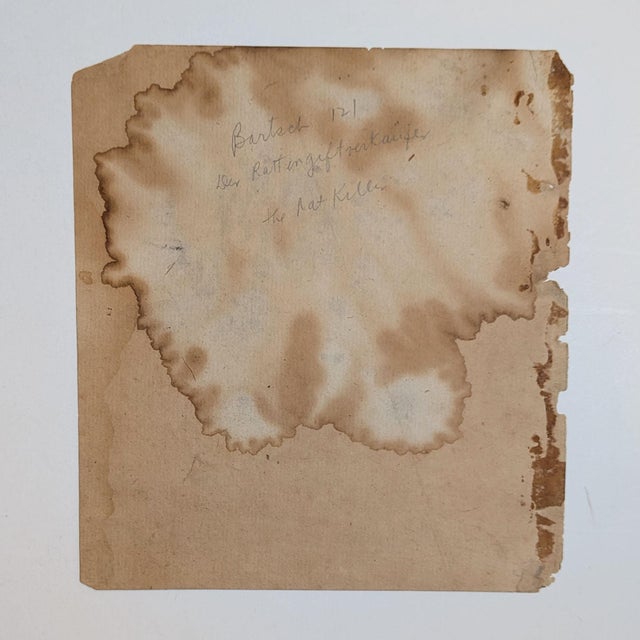 Bartsch 121
Der Rattengiftverkaüfer
the Rat Killer